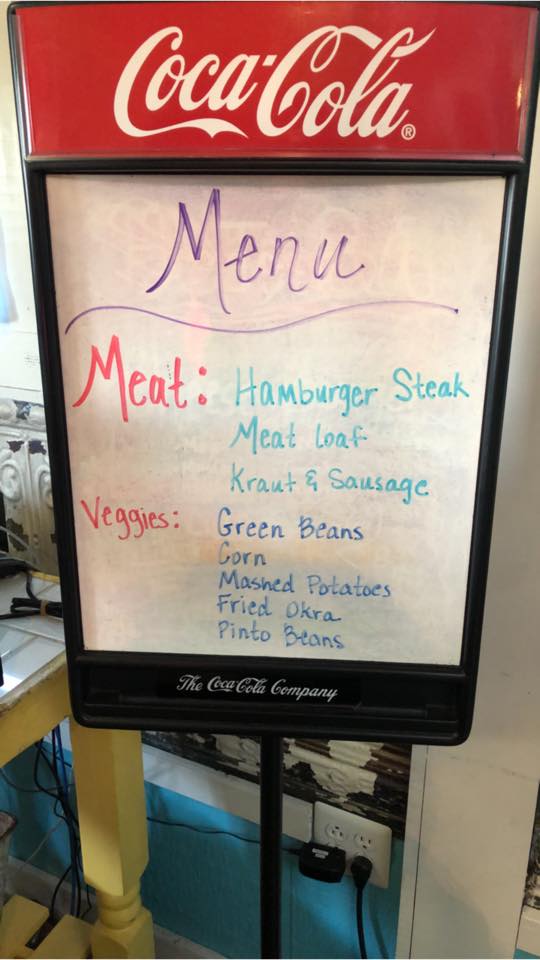 Coca-Cola®
Menu
Meat: Hamburger Steak
Meat loaf
Kraut & Sausage
Veggies: Green Beans
Corn
Mashed Potatoes
Fried Okra
Pinto Beans
The Coca-Cola Company